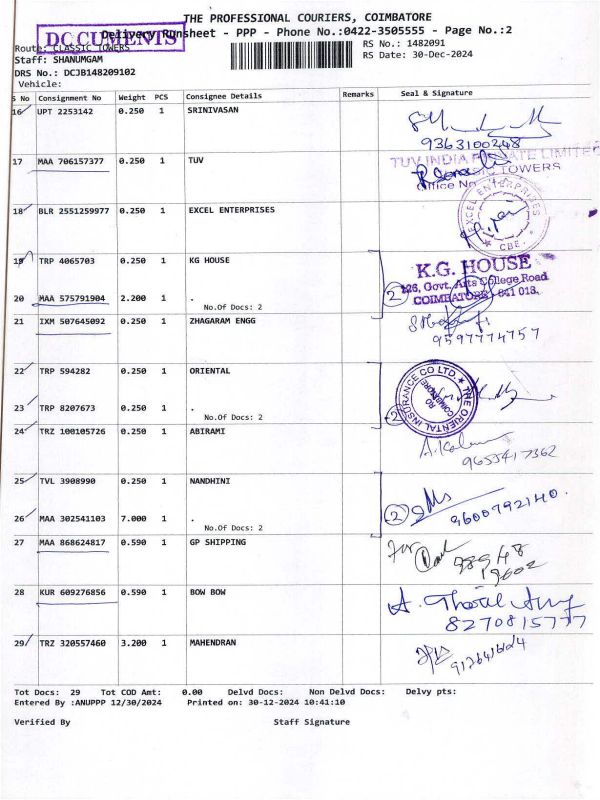 THE PROFESSIONAL COURIERS, COIMBATORE
DOCUMENTS
Delivery Runsheet - PPP - Phone No.:0422-3505555 - Page No.:2
Route: CLASSIC TOWERS
RS No.: 1482091
Staff: SHANUMGAM
RS Date: 30-Dec-2024
DRS No.: DCJB148209102
Vehicle:
S No Consignment No Weight PCS Consignee Details Remarks Seal & Signature
16 UPT 2253142 0.250 1 SRINIVASAN
9363100248
17 MAA 706157377 0.250 1 TUV
TUV INDIA PRIVATE LIMITED
TOWERS
Office No
18 BLR 2551259977 0.250 1 EXCEL ENTERPRISES
EXCEL ENTERPRISES
CBE.
19 TRP 4065703 0.250 1 KG HOUSE
K.G. HOUSE
126, Govt. Arts College Road
COIMBATORE - 641 018.
2
20 MAA 575791904 2.200 1 .
No.Of Docs: 2
21 IXM 507645092 0.250 1 ZHAGARAM ENGG
9597774757
22 TRP 594282 0.250 1 ORIENTAL
THE ORIENTAL INSURANCE CO LTD.
RO
COIMBATORE
2
23 TRP 8207673 0.250 1 .
No.Of Docs: 2
24 TRZ 100105726 0.250 1 ABIRAMI
9655417362
25 TVL 3908990 0.250 1 NANDHINI
2
9600792140.
26 MAA 302541103 7.000 1 .
No.Of Docs: 2
27 MAA 868624817 0.590 1 GP SHIPPING
For
98948
28 KUR 609276856 0.590 1 BOW BOW
8270815777
29 TRZ 320557460 3.200 1 MAHENDRAN
Tot Docs: 29 Tot COD Amt: 0.00 Delvd Docs: Non Delvd Docs: Delvy pts:
Entered By :ANUPPP 12/30/2024 Printed on: 30-12-2024 10:41:10
Verified By Staff Signature